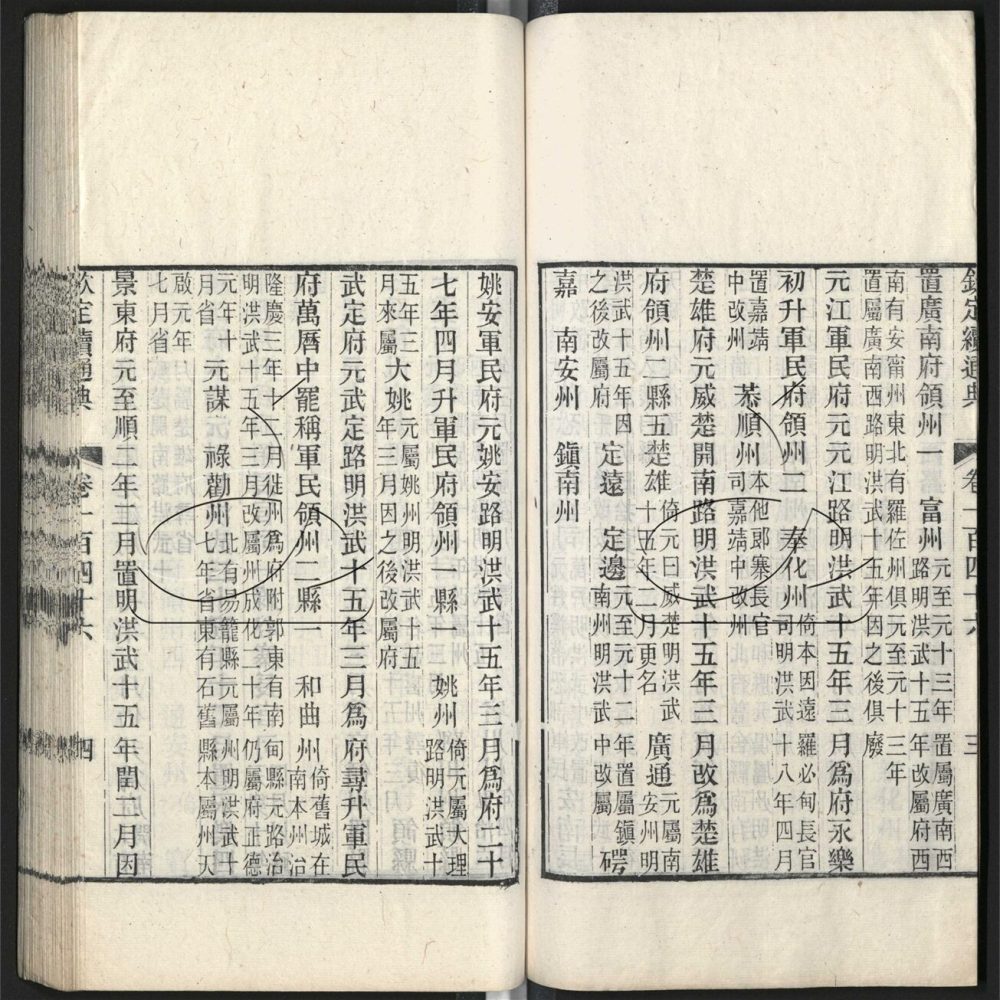 欽定續通典 卷一百四十六 三
置廣南府領州一 富州 元至元十三年置屬廣南西
路明洪武十五年改屬府西
南有安甯州東北有羅佐州俱元至元十三年
置屬廣南西路明洪武十五年因之後俱廢
元江軍民府元元江路明洪武十五年三月爲府永樂
初升軍民府領州二 奉化州 倚本因遠羅必甸長官
司明洪武十八年四月
置嘉靖
中改州 恭順州 本他郎寨長官
司嘉靖中改州
楚雄府元威楚開南路明洪武十五年三月改爲楚雄
府領州二縣五楚雄 倚元曰威楚明洪武
十五年二月更名 廣通 元屬南
安州明
洪武十五年因
之後改屬府 定遠 定邊 元至元十二年置屬鎭
南州明洪武中改屬 碍
嘉 南安州 鎭南州
姚安軍民府元姚安路明洪武十五年三月爲府二十
七年四月升軍民府領州一縣一 姚州 倚元屬大理
路明洪武十
五年三
月來屬 大姚 元屬姚州明洪武十五
年三月因之後改屬府
武定府元武定路明洪武十五年三月爲府尋升軍民
府萬厤中罷稱軍民領州二縣一 和曲州 倚舊城在
南本州治
隆慶三年十二月徙州爲府附郭東有南甸縣元路治
明洪武十五年三月改屬州成化二十年仍屬府正德
元年十
月省 元謀 祿勸州 北有易籠縣元屬州明洪武十
七年省東有石舊縣本屬州天
啟元年
七月省
景東府元至順二年三月置明洪武十五年閏二月因
欽定續通典 卷一百四十六 四